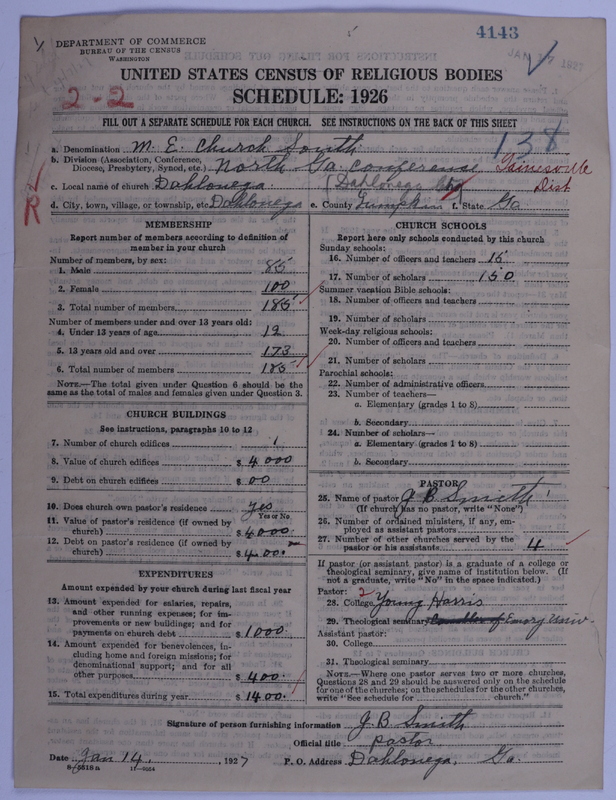 4143
DEPARTMENT OF COMMERCE
BUREAU OF THE CENSUS
WASHINGTON
UNITED STATES CENSUS OF RELIGIOUS BODIES
2-2
SCHEDULE: 1926
FILL OUT A SEPARATE SCHEDULE FOR EACH CHURCH. SEE INSTRUCTIONS ON THE BACK OF THIS SHEET
138
a. Denomination M. E. Church South
b. Division (Association, Conference, Diocese, Presbytery, Synod, etc.) North Ga. Conference Gainesville Dist
c. Local name of church Dahlonega (Dahlonega Chg
d. City, town, village, or township, etc. Dahlonega e. County Lumpkin f. State Ga
R
MEMBERSHIP
Report number of members according to definition of
member in your church
Number of members, by sex:
1. Male 85
2. Female 100
3. Total number of members 185
Number of members under and over 13 years old:
4. Under 13 years of age 12
5. 13 years old and over 173
6. Total number of members 185
NOTE.—The total given under Question 6 should be the
same as the total of males and females given under Question 3.
CHURCH BUILDINGS
See instructions, paragraphs 10 to 12
7. Number of church edifices 1
8. Value of church edifices $ 4000
9. Debt on church edifices $ 00
10. Does church own pastor's residence yes
Yes or No
11. Value of pastor's residence (if owned by
church) $ 4000
12. Debt on pastor's residence (if owned by
church) $ 400
EXPENDITURES
Amount expended by your church during last fiscal year
13. Amount expended for salaries, repairs,
and other running expenses; for im-
provements or new buildings; and for
payments on church debt $ 1000
14. Amount expended for benevolences, in-
cluding home and foreign missions; for
denominational support; and for all
other purposes $ 400
15. Total expenditures during year $ 1400
CHURCH SCHOOLS
Report here only schools conducted by this church
Sunday schools:
16. Number of officers and teachers 15
17. Number of scholars 150
Summer vacation Bible schools:
18. Number of officers and teachers
19. Number of scholars
Week-day religious schools:
20. Number of officers and teachers
21. Number of scholars
Parochial schools:
22. Number of administrative officers
23. Number of teachers—
a. Elementary (grades 1 to 8)
b. Secondary
24. Number of scholars—
a. Elementary (grades 1 to 8)
b. Secondary
PASTOR
25. Name of pastor J. B. Smith 1
(If church has no pastor, write "None")
26. Number of ordained ministers, if any, em-
ployed as assistant pastors
27. Number of other churches served by the
pastor or his assistants 4
If pastor (or assistant pastor) is a graduate of a college or
theological seminary, give name of institution below. (If
not a graduate, write "No" in the space indicated.)
Pastor: 2
28. College Young Harris
29. Theological seminary Candler of Emory Univ.
Assistant pastor:
30. College
31. Theological seminary
NOTE.—Where one pastor serves two or more churches,
Questions 28 and 29 should be answered only on the schedule
for one of the churches; on the schedules for the other churches,
write "See schedule for church."
Signature of person furnishing information J. B. Smith
Official title pastor
Date Jan 14, 1927 P. O. Address Dahlonega, Ga.